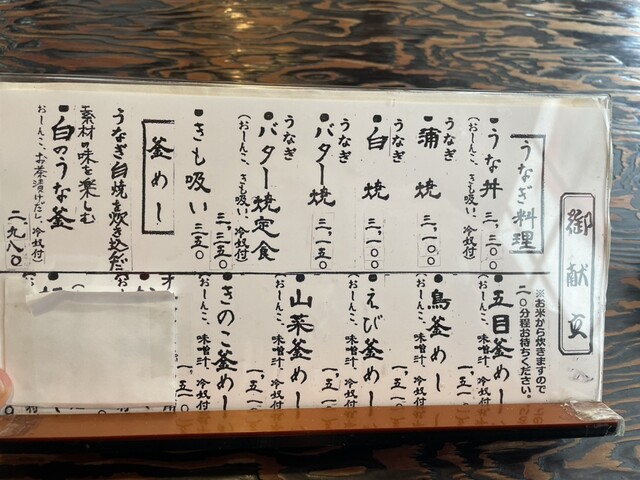 御献立
うなぎ料理
●うな丼 三、三〇〇
(おしんこ、きも吸い、冷奴付)
うなぎ
●蒲焼 三、一〇〇
うなぎ
●白焼 三、一〇〇
うなぎ
●バター焼 三、一五〇
うなぎ
●バター焼定食
(おしんこ、きも吸い、冷奴付)
三、三五〇
●きも吸い 三五〇
釜めし
うなぎ白焼を炊き込んだ
素材の味を楽しむ
●白のうな釜
(おしんこ、お茶漬けだし、冷奴付)
二、九八〇
※お米から炊きますので
二〇分程お待ちください。
●五目釜めし
(おしんこ、味噌汁、冷奴付)
一、五
●鳥釜めし
(おしんこ、味噌汁、冷奴付)
一、五一
●えび釜めし
(おしんこ、味噌汁、冷奴付)
一、五一
●山菜釜めし
(おしんこ、味噌汁、冷奴付)
一、五一
●きのこ釜めし
(おしんこ、味噌汁、冷奴付)
一、五一〇